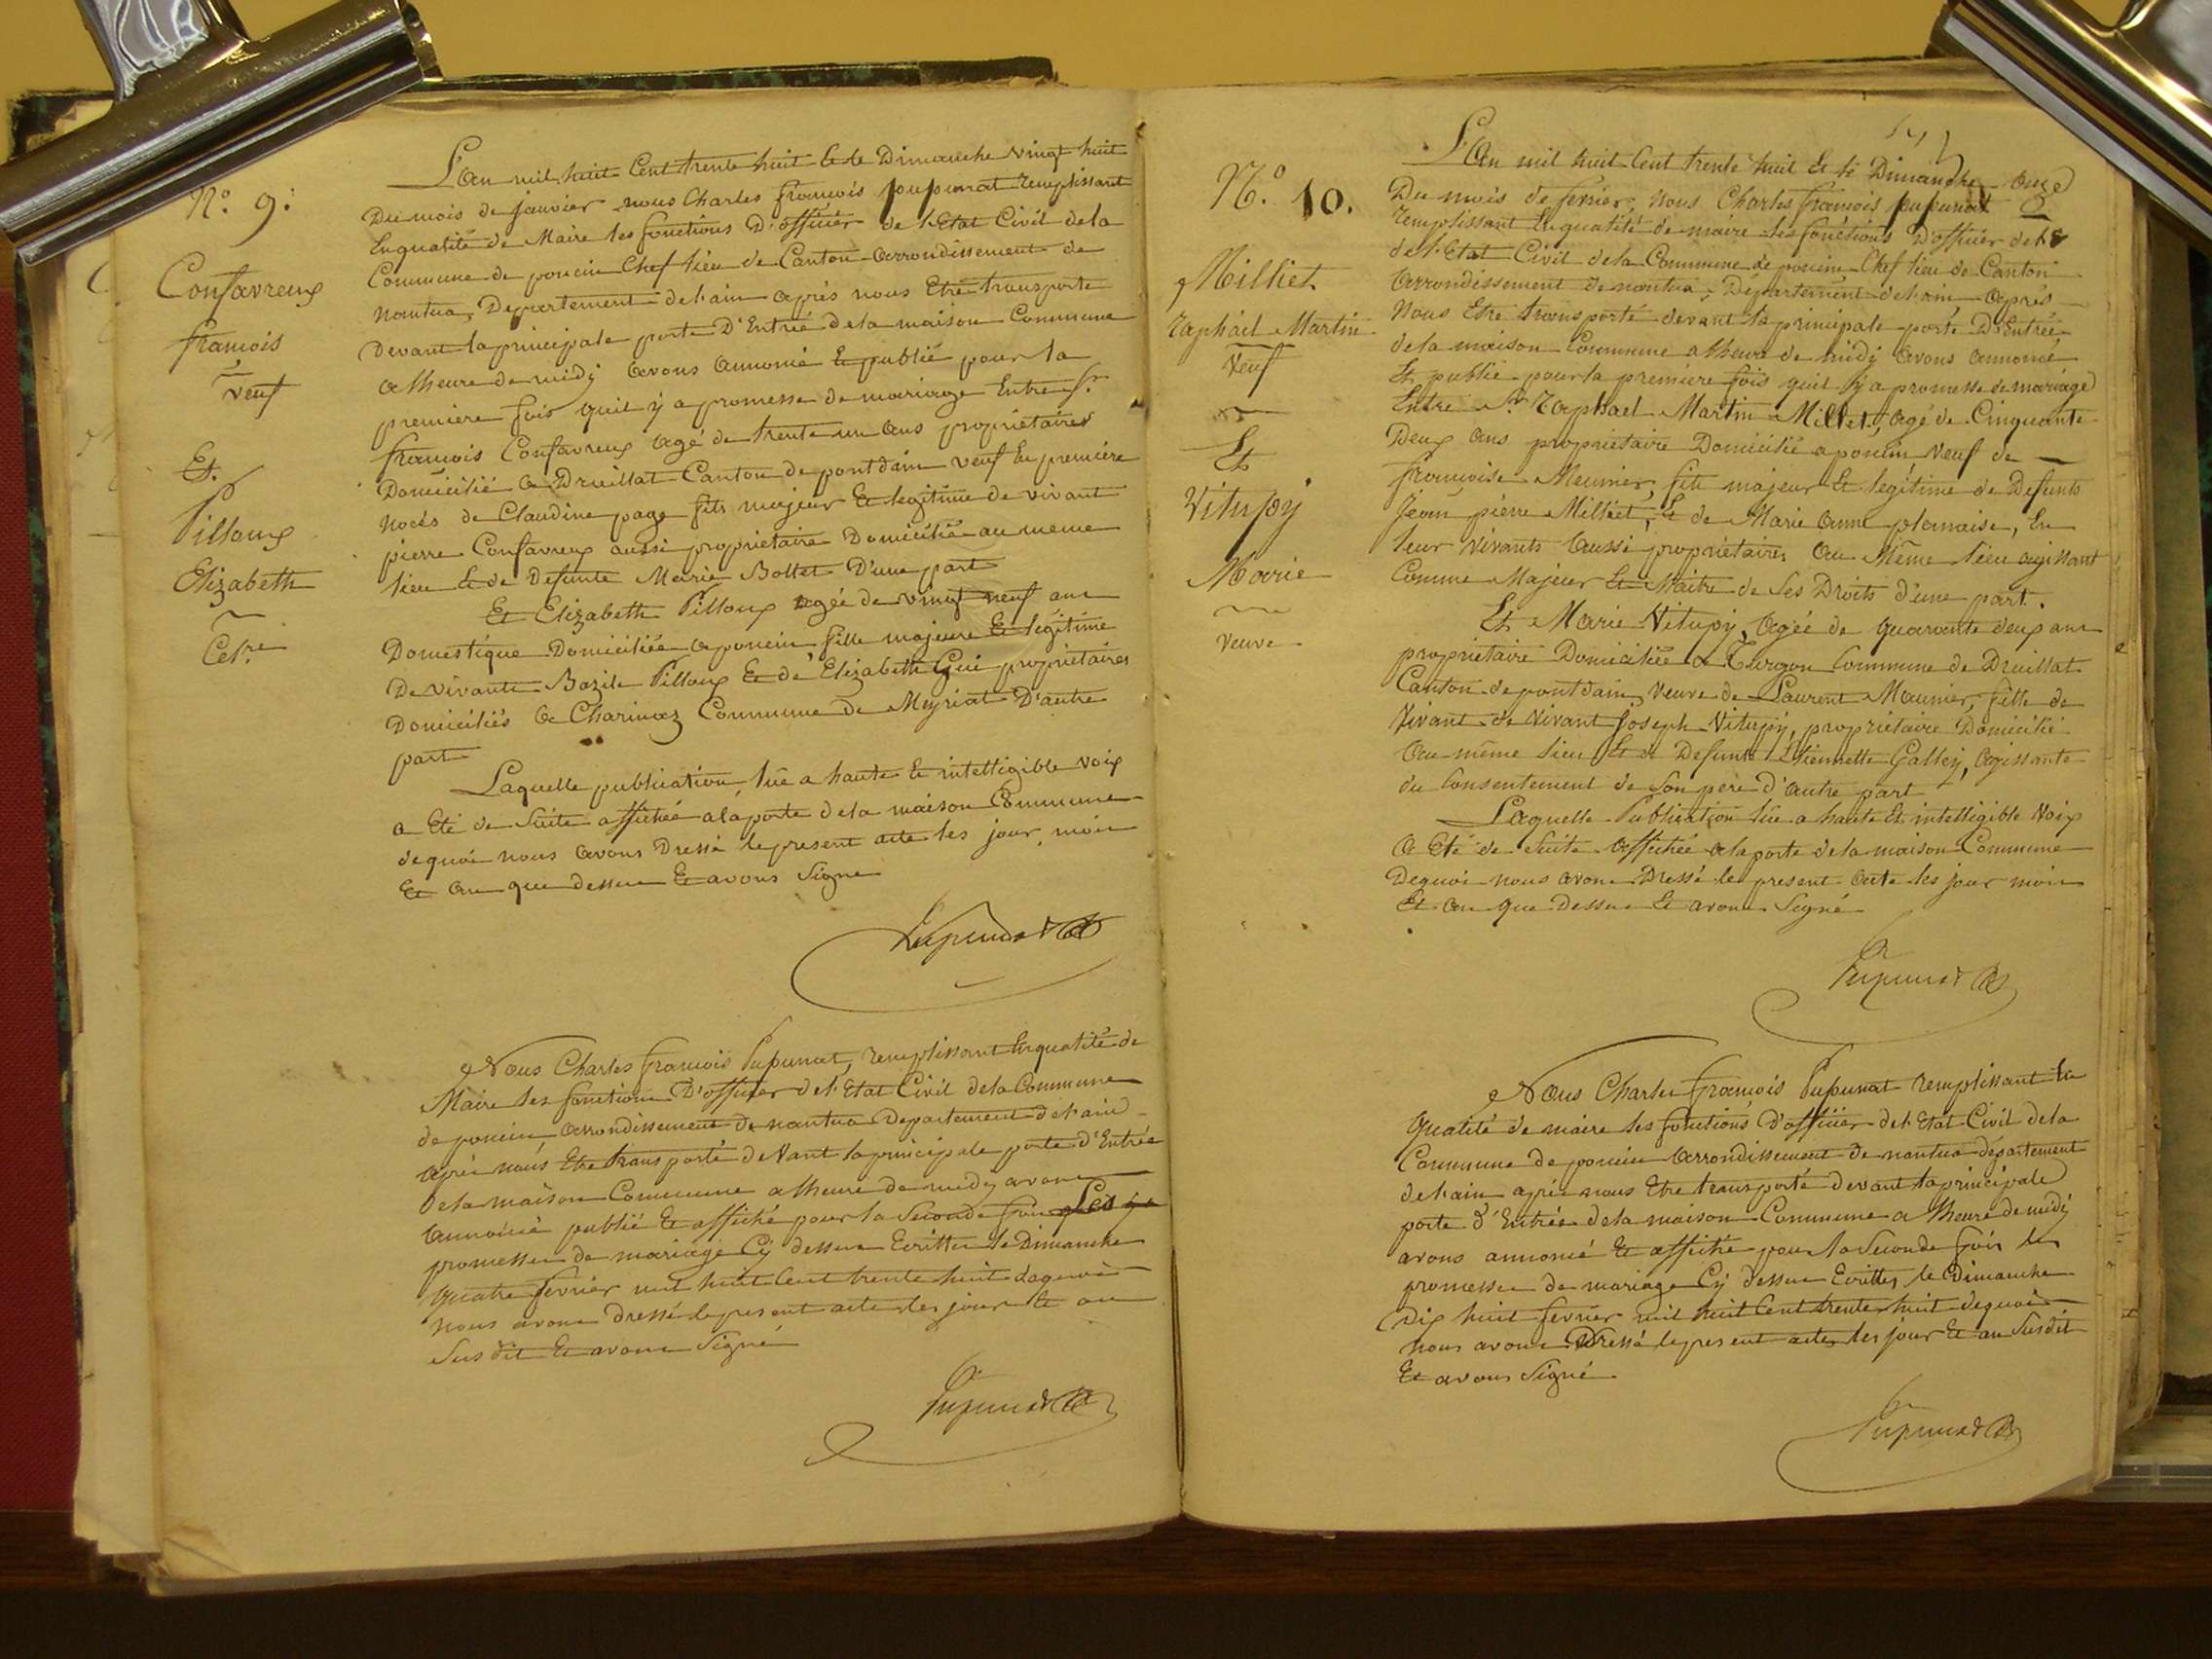 N.o 9.
Confavreux
françois
veuf
Et.
Pilloux
Elizabeth
Cel.re
L'an mil huit Cent trente huit Et le Dimanche vingt huit
Du mois de janvier nous Charles françois pupunat remplissant
En qualité de Maire les fonctions D'officier de l'Etat Civil de la
Commune de poncin Chef lieu de Canton arrondissement de
nantua, Departement de l'ain après nous Etre transporté
Devant la principale porte D'Entrée de la maison Commune
a lheure de midy avons annoncé Et publié pour la
premiere fois quil y a promesse de mariage Entre s.r
françois Confavreux agé de trente un ans propriétaire
Domicilié a Druillat Canton de pontdain veuf En premiere
nocés de Claudine page fils majeur Et legitime de vivant
pierre Confavreux aussi propriétaire Domicilié au meme
lieu Et de Defunte Marie Bollet D'une part
Et Elizabeth Pilloux agée de vingt neuf ans
Domestique Domiciliée a poncin fille majeure Et légitime
De vivants Bazile Pilloux Et de Elizabeth Gui propriétaires
Domiciliés a Charinaz Commune de Meyriat D'autre
part
Laquelle publication, lue a haute Et intelligible voix
a Eté de Suite affichée a la porte de la maison Commune
de quoi nous avons Dressé le present acte les jour, mois
Et an que dessus Et avons Signé
Pupunat
Nous Charles françois Pupunat, remplissant En qualité de
Maire les fonctions D'officier de l'Etat Civil de la Commune
de poncin, arrondissement de nantua Departement de l'ain
après nous Etre transporté devant la principale porte d'Entrée
De la maison Commune a lheure de midy avons
annoncé publié Et affiché pour la Seconde fois Les
promesses de mariage Cy dessus Ecrittes le Dimanche
quatre fevrier mil huit Cent trente huit de quoi
nous avons dressé le present acte les jour Et an
Sus dit Et avons Signé
Pupunat
N.o 10.
Milliet
raphaël Martin
veuf
Et
Vitupy
Marie
veuve
L'An mil huit Cent trente huit Et le Dimanche onze
Du mois de fevrier, nous Charles françois pupunat
remplissant En qualité de maire les fonctions D'officier de l'E
de l'Etat Civil de la Commune de poncin Chef lieu de Canton
arrondissement de nantua, Département de l'ain après
Nous Etre transporté devant la principale porte D'Entrée
de la maison Commune a lheure de midy avons annoncé
Et publié pour la premiere fois quil y a promesse de mariage
Entre S.r raphael Martin Milliet, agé de Cinquante
Deux ans propriétaire Domicilié a poncin veuf de
françoise Meunier, fils majeur Et légitime de Defunts
Jean pierre Milliet, Et de Marie anne plamaise, En
leur vivants aussi propriétaires au Même lieu agissant
Comme Majeur Et Maitre de Ses Droits d'une part.
Et Marie Vitupy, agée de quarante deux ans
propriétaire Domiciliée a Turgon Commune de Druillat
Canton de pontdain, veuve de Laurent Maunier, fille de
Vivant de Vivant joseph Vitupy, propriétaire Domicilié
Au même lieu Et de Defunte Etiennette Galley, agissante
du Consentement de Son pere d'autre part
Laquelle Publication lue a haute Et intelligible Voix
a Eté de Suite affichée a la porte de la maison Commune
De quoi nous avons Dressé le present acte les jour mois
Et an que Dessus Et avons Signé
Pupunat
Nous Charles françois Pupunat remplissant En
Qualité de maire les fonctions d'officier de l'Etat Civil de la
Commune de poncin arrondissement de nantua département
de l'ain après nous Etre transporté devant la principale
porte d'Entrée de la maison Commune a lheure de midy
avons annoncé Et affiché pour la Seconde fois les
promesses de mariage Cy dessus Ecrittes le Dimanche
Dix huit fevrier mil huit Cent trente huit de quoi
nous avons Dressé le present acte les jour Et an Sus dit
Et avons Signé
Pupunat